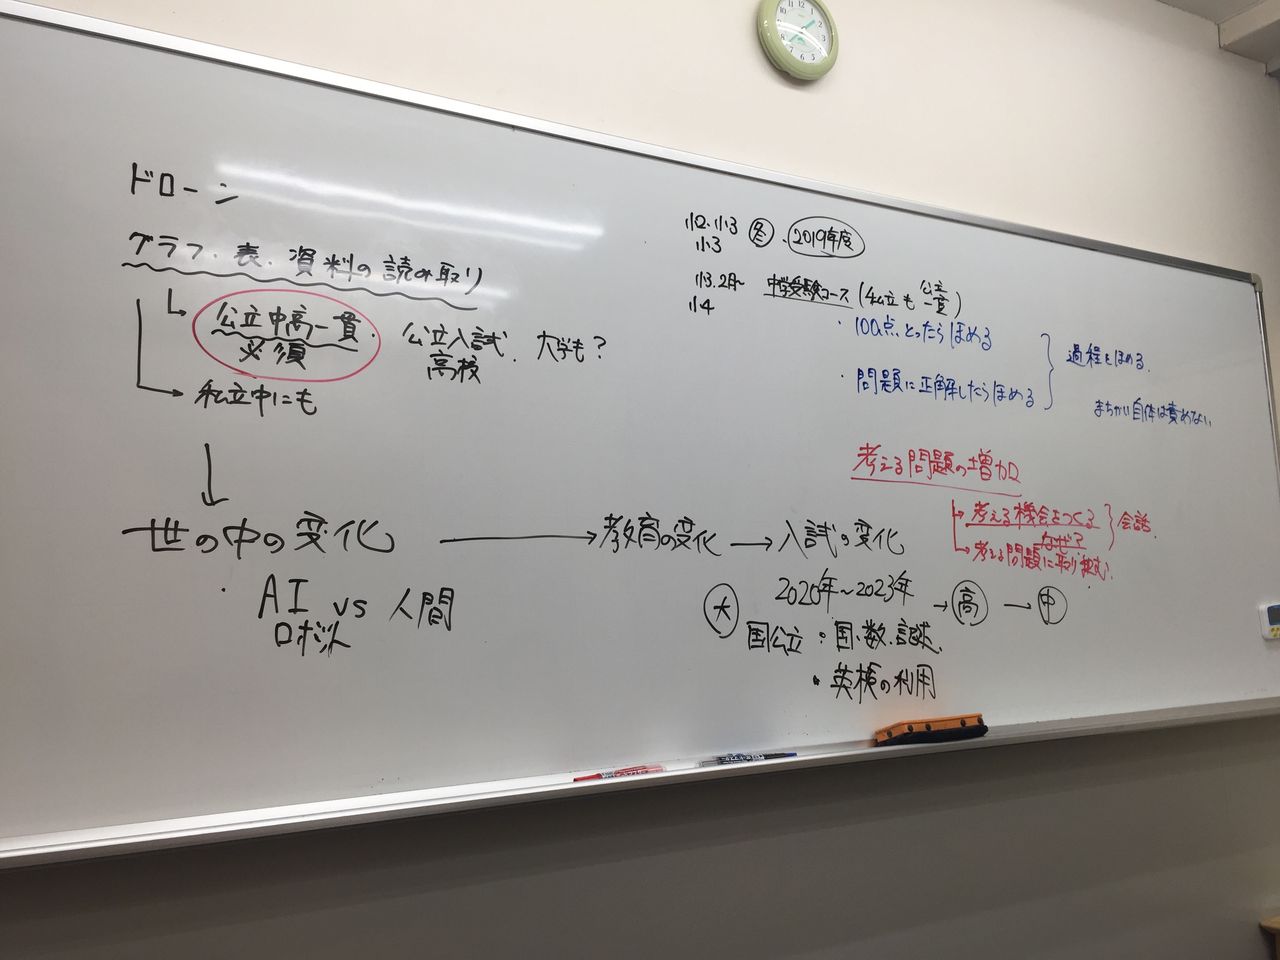 ドローン
グラフ・表・資料の読み取り
公立中高一貫
必須
公立入試
高校
大学も?
私立中にも
世の中の変化
AI vs 人間
ロボット
教育の変化
入試の変化
大
2020年~2023年
国公立・国・数・記述
・英検の利用
高
中
小2.小3 冬 2019年度
小3
小3.2月~ 中学受験コース (私立も公立一貫)
小4
・100点とったらほめる
・問題に正解したらほめる
過程をほめる.
まちがい自体は責めない.
考える問題の増加
考える機会をつくる
なぜ?
会話
考える問題に取り組む.